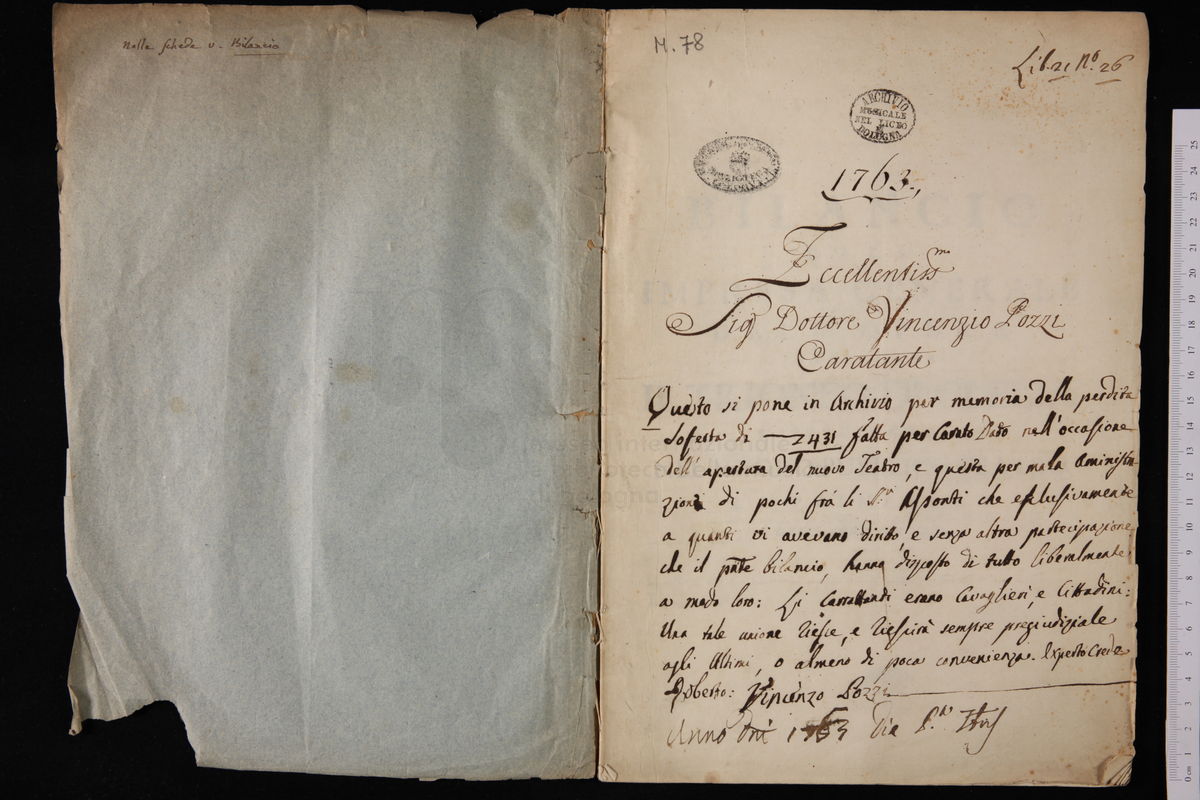 Nelle schede v. Bilancio
M. 78
Lib. 21 N.º 26
ARCHIVIO
MUSICALE
NEL LICEO
DI
BOLOGNA
1763.
Eccellentiss.mo
Sig Dottore Vincenzio Pozzi
Caratante
Questo si pone in Archivio per memoria della perdita
Soferta di 2431 fatta per Carato Dato nell'occasione
dell'apertura del nuovo Teatro, e questa per mala Aministra-
zione di pochi frà li S.ri Asonti che esclusivamente
a quanti vi avevano diritto, e senza altra partecipazione
che il pnte bilancio, hanno disposto di tutto liberalmente
a modo loro: Li Carattanti erano Cavaglieri, e Cittadini:
Una tale unione riesce, e riescirà sempre pregiudiziale
agli Ultimi, o almeno di poca convenienza. Experto Crede
Roberto: Vincenzo Pozzi
Anno Dni 1763 Die